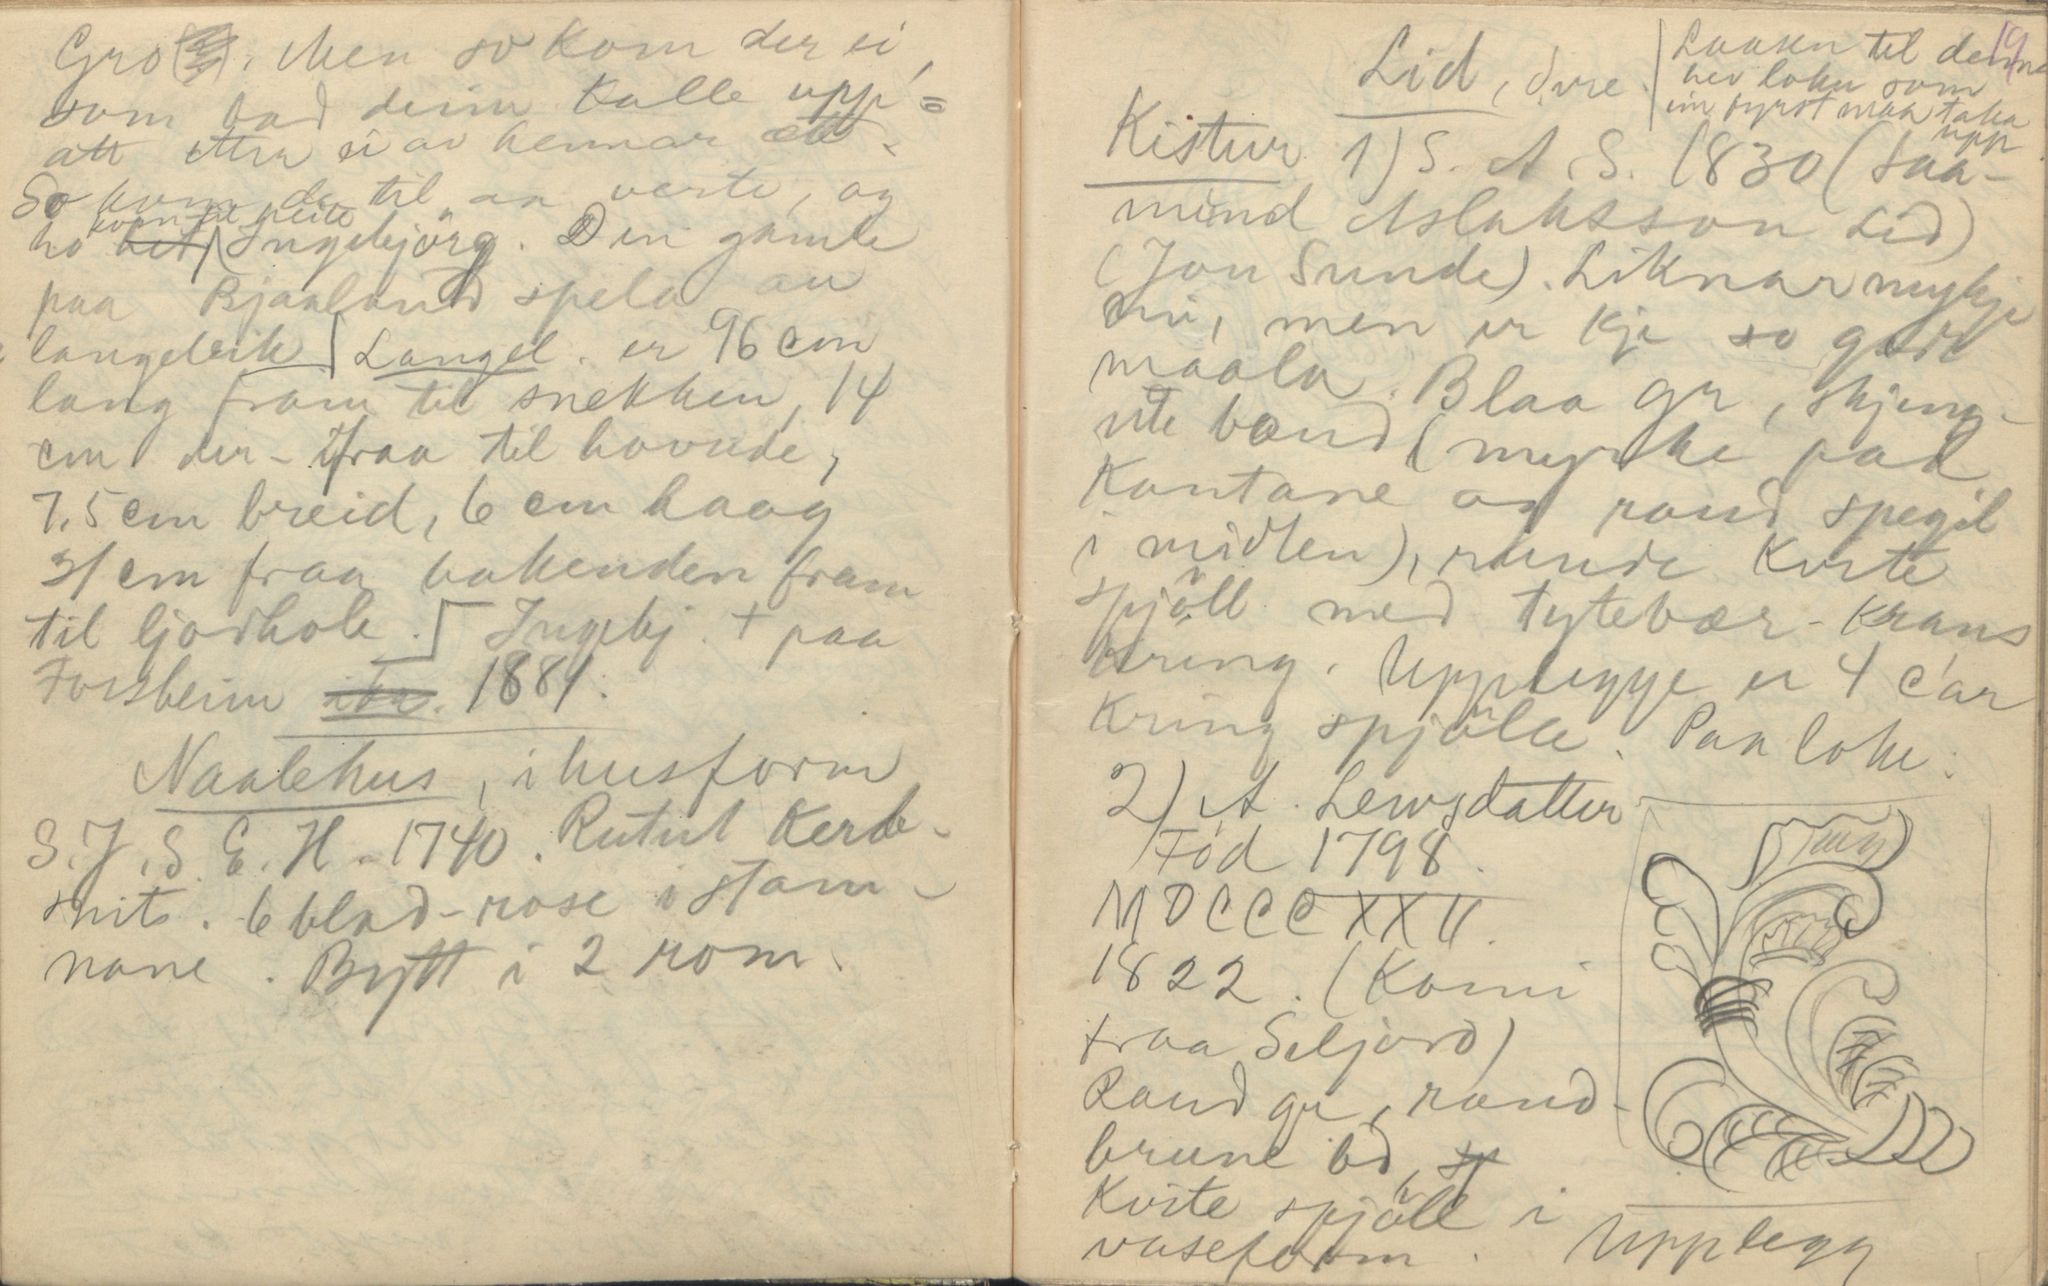 Gro. Men so kom der ei,
som bad deim kalle upp=
att ettra ei av hennar ætt.
So kom de til aa verte, og
ho kom te heite Ingebjörg. Den gamle
paa Bjaaland spela au
langeleik | Langel. er 96 cm
lang fram til snekken, 14
cm der-ifraa til hovude,
7,5 cm breid, 6 cm haag
31 cm fraa bakenden fram
til ljodhole. Ingebj. + paa
Forsheim 1881.
Naalehus, i husform
S. J. S. E. H. 1740. Rutut Kerb-
snit. 6 blad-rose i stam-
nane. Bytt i 2 rom.
19
Lid, övre.
Laaken til denna
hev loku som
ein fyrst maa taka
upp
Kistur 1) S. A. S. 1830 (Saa-
mund Aslaksson Lid)
(Jon Sunde). Liknar mykje
mi, men er kje so godt
maala. Blaa gr, skjeng-
ute band (myrke paa
Kantane og raud spegil
i midten), runde kvite
spjöll med tytebær-krans
kring. Upplegge er 4 c'ar
kring spjölle. Paa loke:
2) A. Lewsdatter
Fød 1798.
MDCCCXXII.
1822. (Komi
fraa Seljord)
Raud gr, raud-
brune bd,
Kvite spjöll i
vaseform.
Upplegg